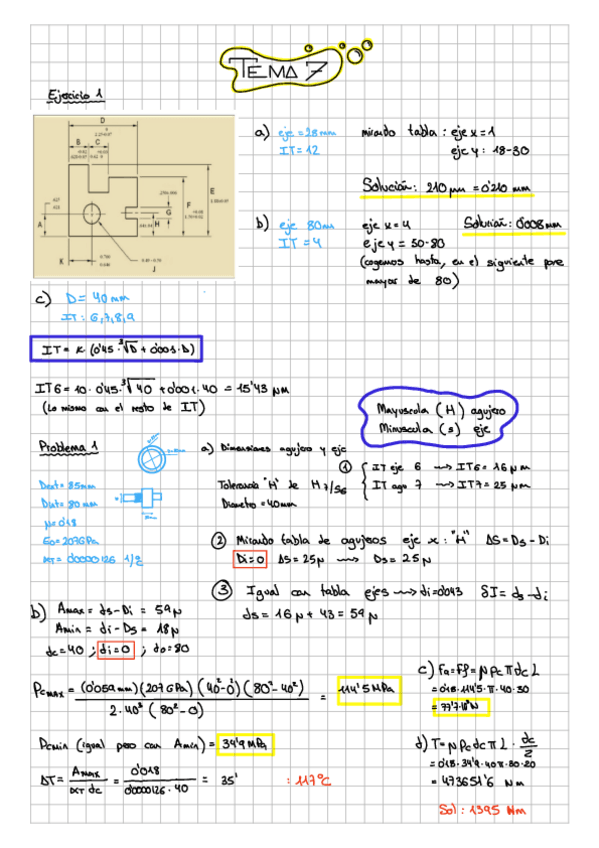 TEMA 7
Ejercicio 1
a) eje = 28 mm
IT = 12
mirando tabla : eje x = 1
eje y : 18-30
Solución : 210 μm = 0'210 mm
b) eje 80 mm
IT = 4
eje x = 4
eje y = 50-80
(cogemos hasta, en el siguiente pone
mayor de 80)
Solución : 0'008 mm
D
B
C
E
F
G
H
A
K
J
c) D = 40 mm
IT : 6,7,8,9
IT = K (0'45 · ∛D + 0'001 · D)
IT6 = 10 · 0'45 · ∛40 + 0'001 · 40 = 15'43 μm
(Lo mismo con el resto de IT)
Mayuscula (H) agujero
Minuscula (s) eje
Problema 1
Dext = 85mm
Dint = 80 mm
μ = 0'18
E0 = 207 GPa
αT = 0'0000126 1/ºC
a) Dimensiones agujero y eje
Tolerancia "H" de H7/s6
Diametro = 40mm
① IT eje 6 ⟶ IT6 = 16 μm
IT agu 7 ⟶ IT7 = 25 μm
② Mirando tabla de agujeros eje x : "H" ΔS = Ds - Di
Di = 0 ΔS = 25μ ⟶ Ds = 25 μ
③ Igual con tabla ejes ⟶ di = 0'043 δI = ds - di
ds = 16 μ + 43 = 59 μ
b) Amax = ds - Di = 59 μ
Amin = di - Ds = 18 μ
dc = 40 ; di = 0 ; do = 80
Pcmax = (0'059 mm)(207 GPa)(40² - 0²)(80² - 40²) / 2 · 40³ (80² - 0) = 114'5 MPa
Pcmin (igual pero con Amin) = 34'9 MPa
ΔT = Amax / αT dc = 0'018 / 0'0000126 · 40 = 35' : 117ºC
c) Fa = Ff = μ Pc π dc L
= 0'18 · 114'5 · π · 40 · 30
= 77'7·10³ N
d) T = μ Pc dc π L · dc/2
= 0'18 · 34'9 · 40 π · 30 · 20
= 473651'6 Nm
Sol : 1395 Nm